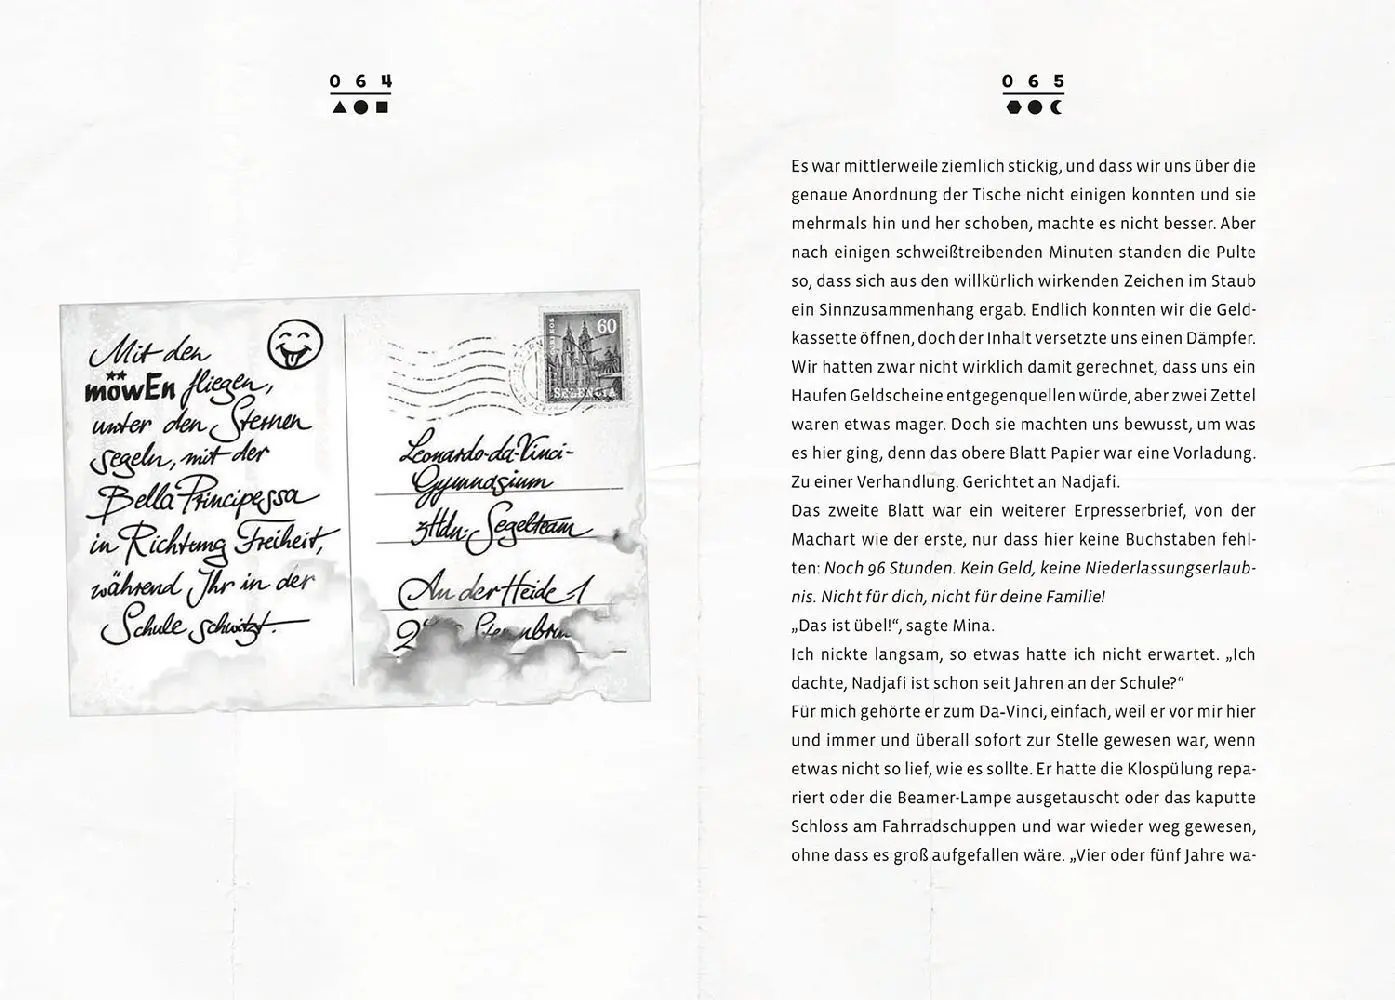 064
Mit den
möwEn fliegen,
unter den Sternen
segeln, mit der
Bella Principessa
in Richtung Freiheit,
während Ihr in der
Schule schwitzt.
60
Leonardo-da-Vinci-
Gymnasium
zHdn. Segelteam
An der Heide 1
065
Es war mittlerweile ziemlich stickig, und dass wir uns über die
genaue Anordnung der Tische nicht einigen konnten und sie
mehrmals hin und her schoben, machte es nicht besser. Aber
nach einigen schweißtreibenden Minuten standen die Pulte
so, dass sich aus den willkürlich wirkenden Zeichen im Staub
ein Sinnzusammenhang ergab. Endlich konnten wir die Geld-
kassette öffnen, doch der Inhalt versetzte uns einen Dämpfer.
Wir hatten zwar nicht wirklich damit gerechnet, dass uns ein
Haufen Geldscheine entgegenquellen würde, aber zwei Zettel
waren etwas mager. Doch sie machten uns bewusst, um was
es hier ging, denn das obere Blatt Papier war eine Vorladung.
Zu einer Verhandlung. Gerichtet an Nadjafi.
Das zweite Blatt war ein weiterer Erpresserbrief, von der
Machart wie der erste, nur dass hier keine Buchstaben fehl-
ten: Noch 96 Stunden. Kein Geld, keine Niederlassungserlaub-
nis. Nicht für dich, nicht für deine Familie!
„Das ist übel!“, sagte Mina.
Ich nickte langsam, so etwas hatte ich nicht erwartet. „Ich
dachte, Nadjafi ist schon seit Jahren an der Schule?“
Für mich gehörte er zum Da-Vinci, einfach, weil er vor mir hier
und immer und überall sofort zur Stelle gewesen war, wenn
etwas nicht so lief, wie es sollte. Er hatte die Klospülung repa-
riert oder die Beamer-Lampe ausgetauscht oder das kaputte
Schloss am Fahrradschuppen und war wieder weg gewesen,
ohne dass es groß aufgefallen wäre. „Vier oder fünf Jahre wa-